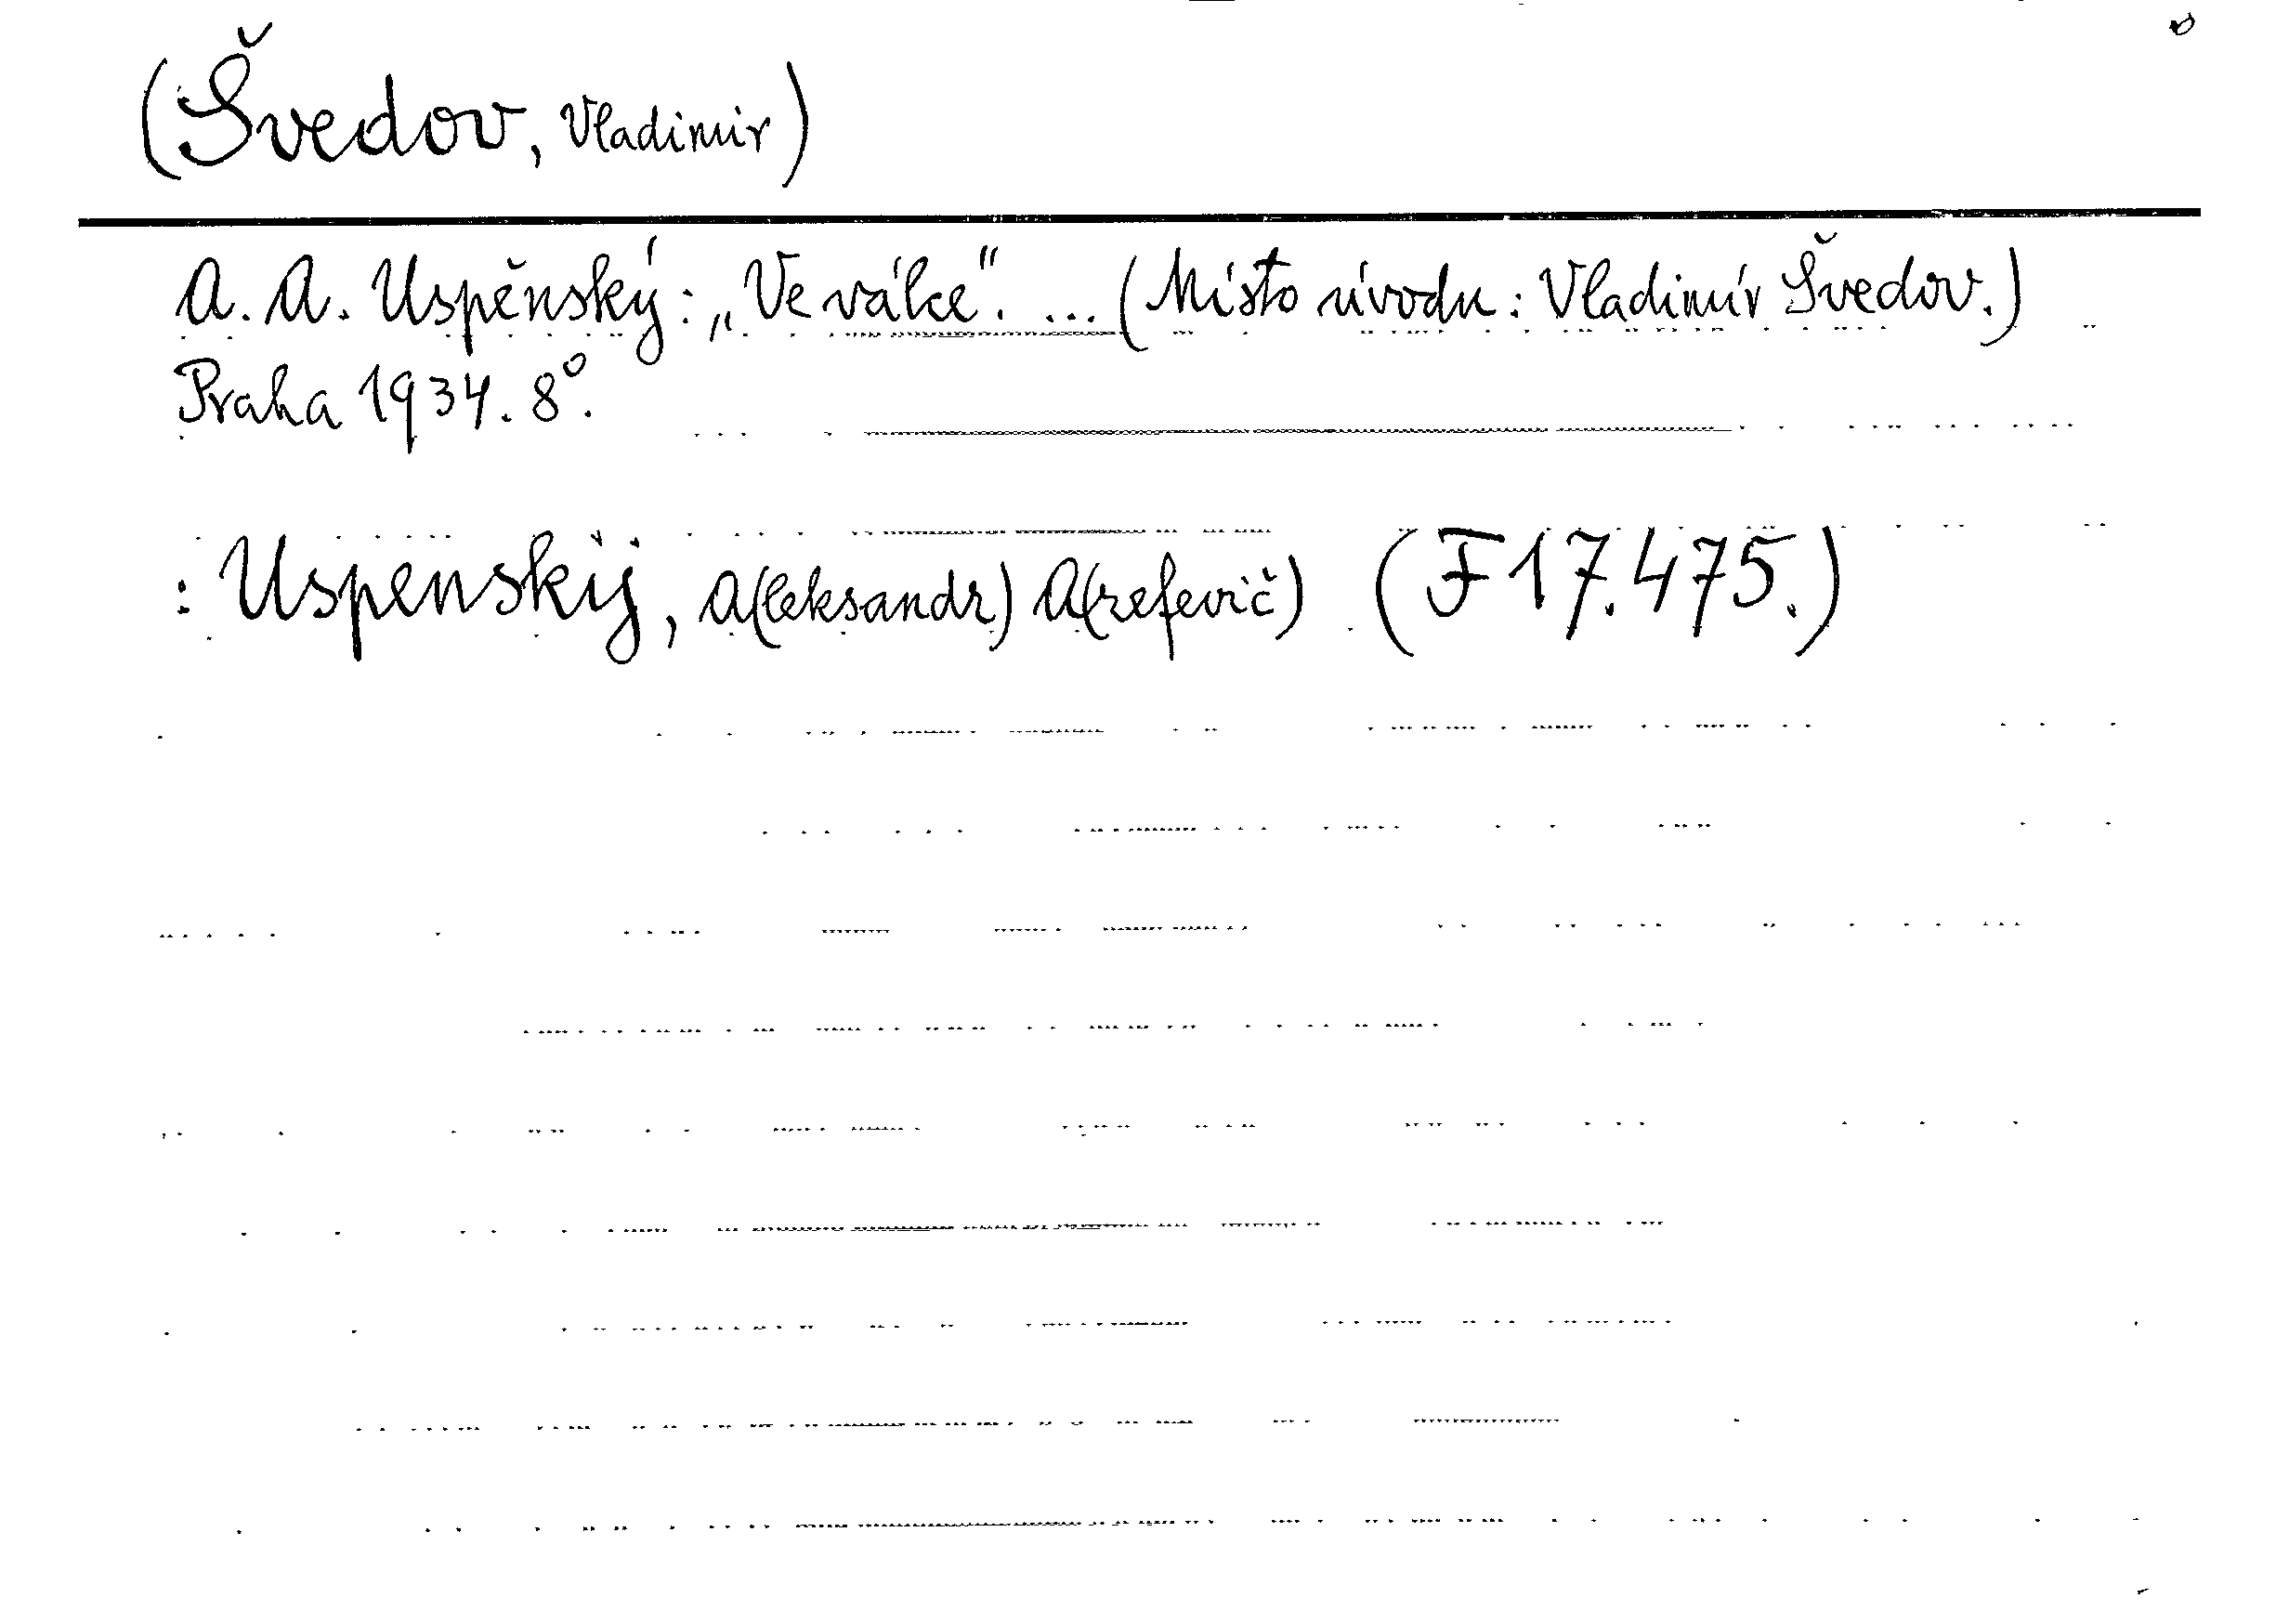 (Švedov, Vladimir)
A. A. Uspěnský: „Ve válce“. ... (Místo úvodu: Vladimír Švedov.)
Praha 1934. 8°.
: Uspenskij, A(leksandr) A(refevič) (F 17.475.)